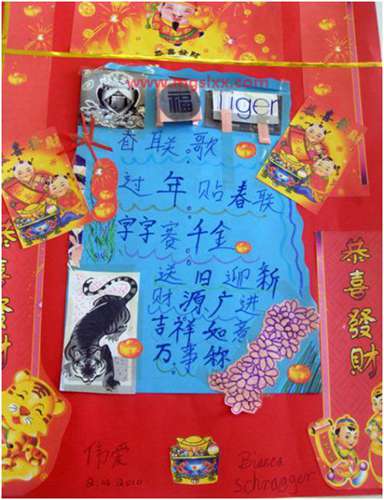 恭喜發財
www.mgslxx.com
福
Tiger
春联歌
过年贴春联
字字赛千金
送旧迎新
财源广进
吉祥如意
万事称
恭喜發財
伟爱
Bianca
Schragger